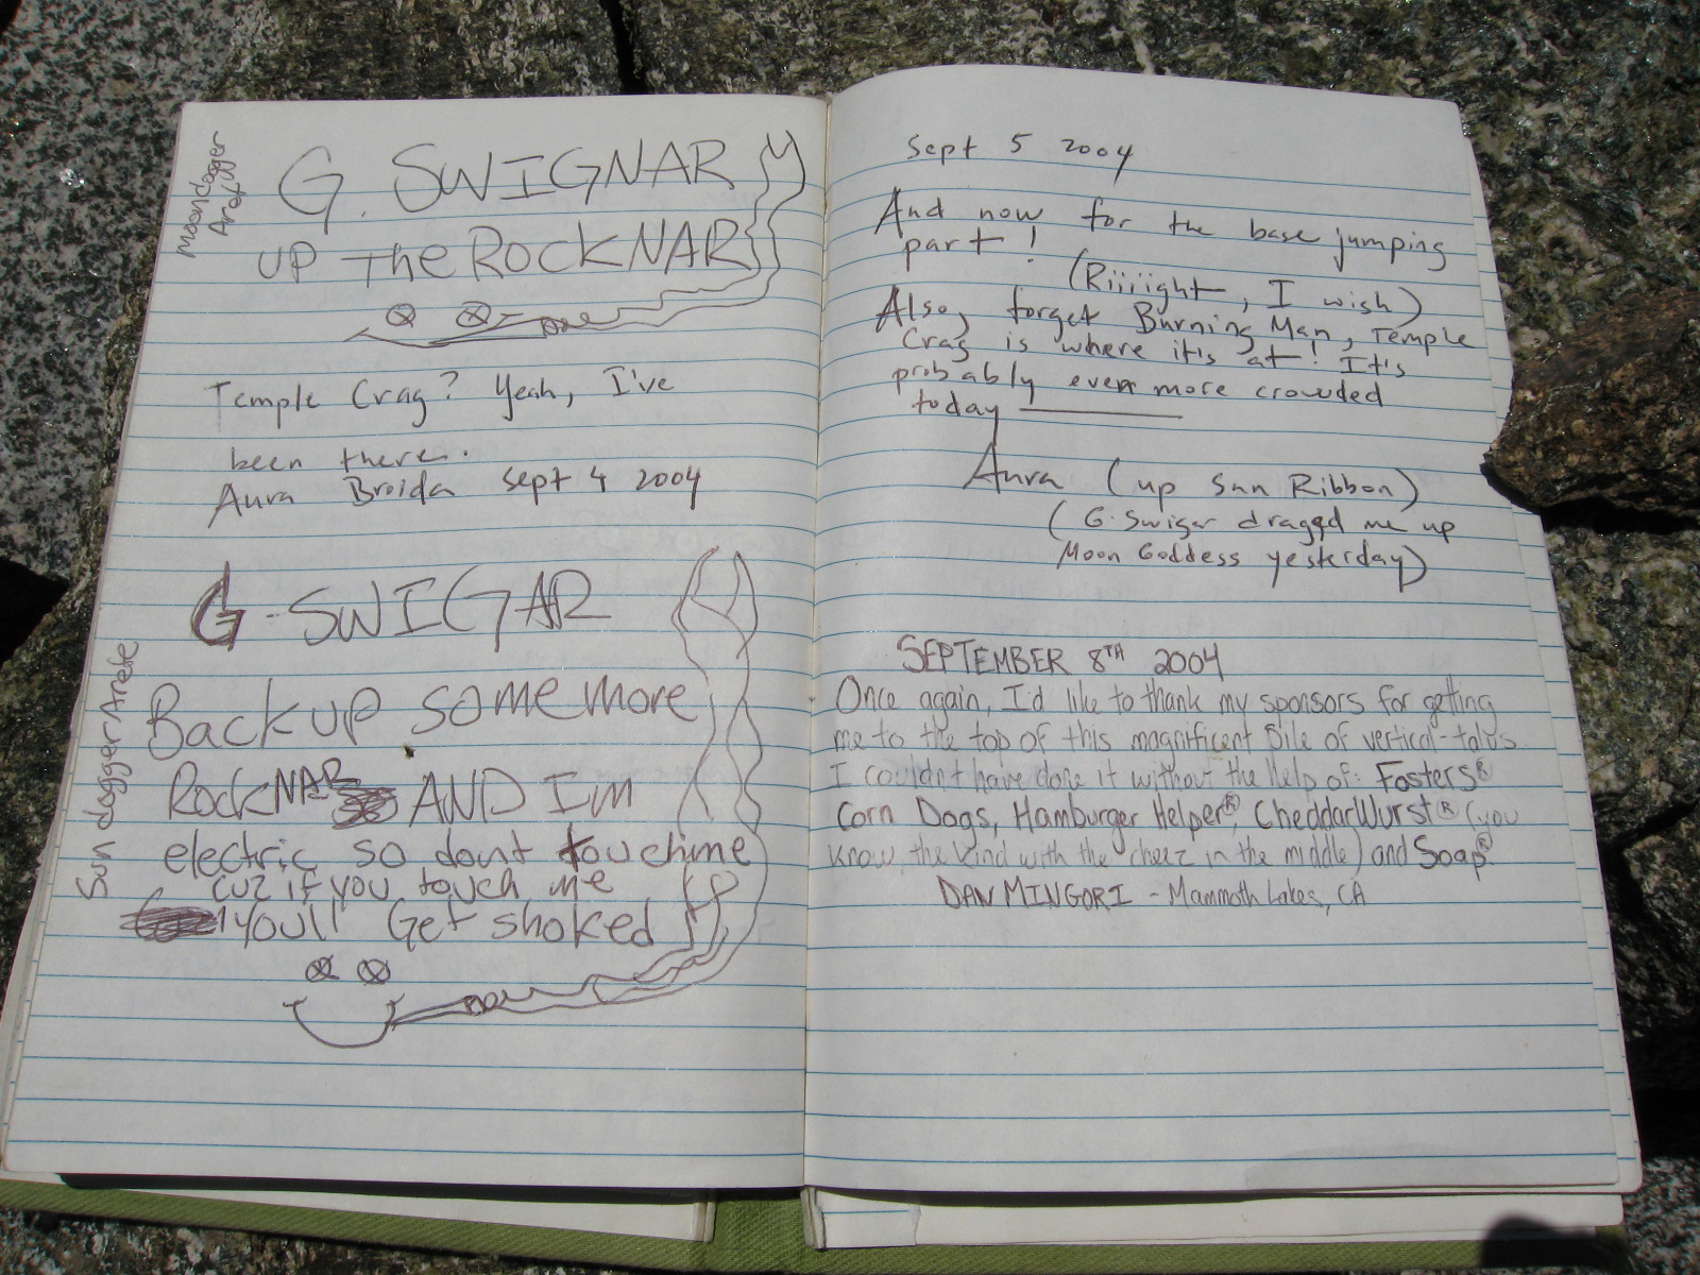 Moondogger
Arete
G. SWIGNAR
UP The ROCKNAR
Temple Crag? Yeah, I've
been there.
Aura Broida Sept 4 2004
Sun dogger Arete
G-SWIGAR
Back up some more
RockNAR AND I'm
electric so dont touch me
cuz if you touch me
youll Get shoked
Sept 5 2004
And now for the base jumping
part!
(Riiiight, I wish)
Also, forget Burning Man, Temple
Crag is where it's at! It's
probably even more crowded
today
Aura (up Sun Ribbon)
(G. Swiger dragged me up
Moon Goddess yesterday)
SEPTEMBER 8TH 2004
Once again, I'd like to thank my sponsors for getting
me to the top of this magnificent pile of vertical-talus
I couldn't have done it without the help of: Fosters®
Corn Dogs, Hamburger Helper®, CheddarWurst® (you
know, the kind with the cheez in the middle) and Soap®
DAN MINGORI - Mammoth Lakes, CA